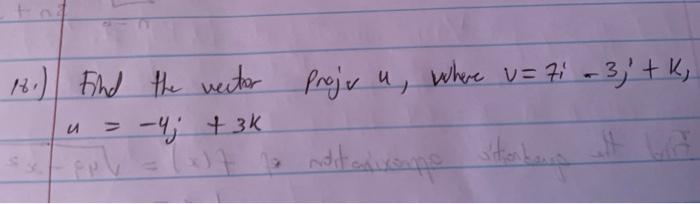 18.) Find the vector projv u, where v = 7i - 3j + k,
u = -4j + 3k